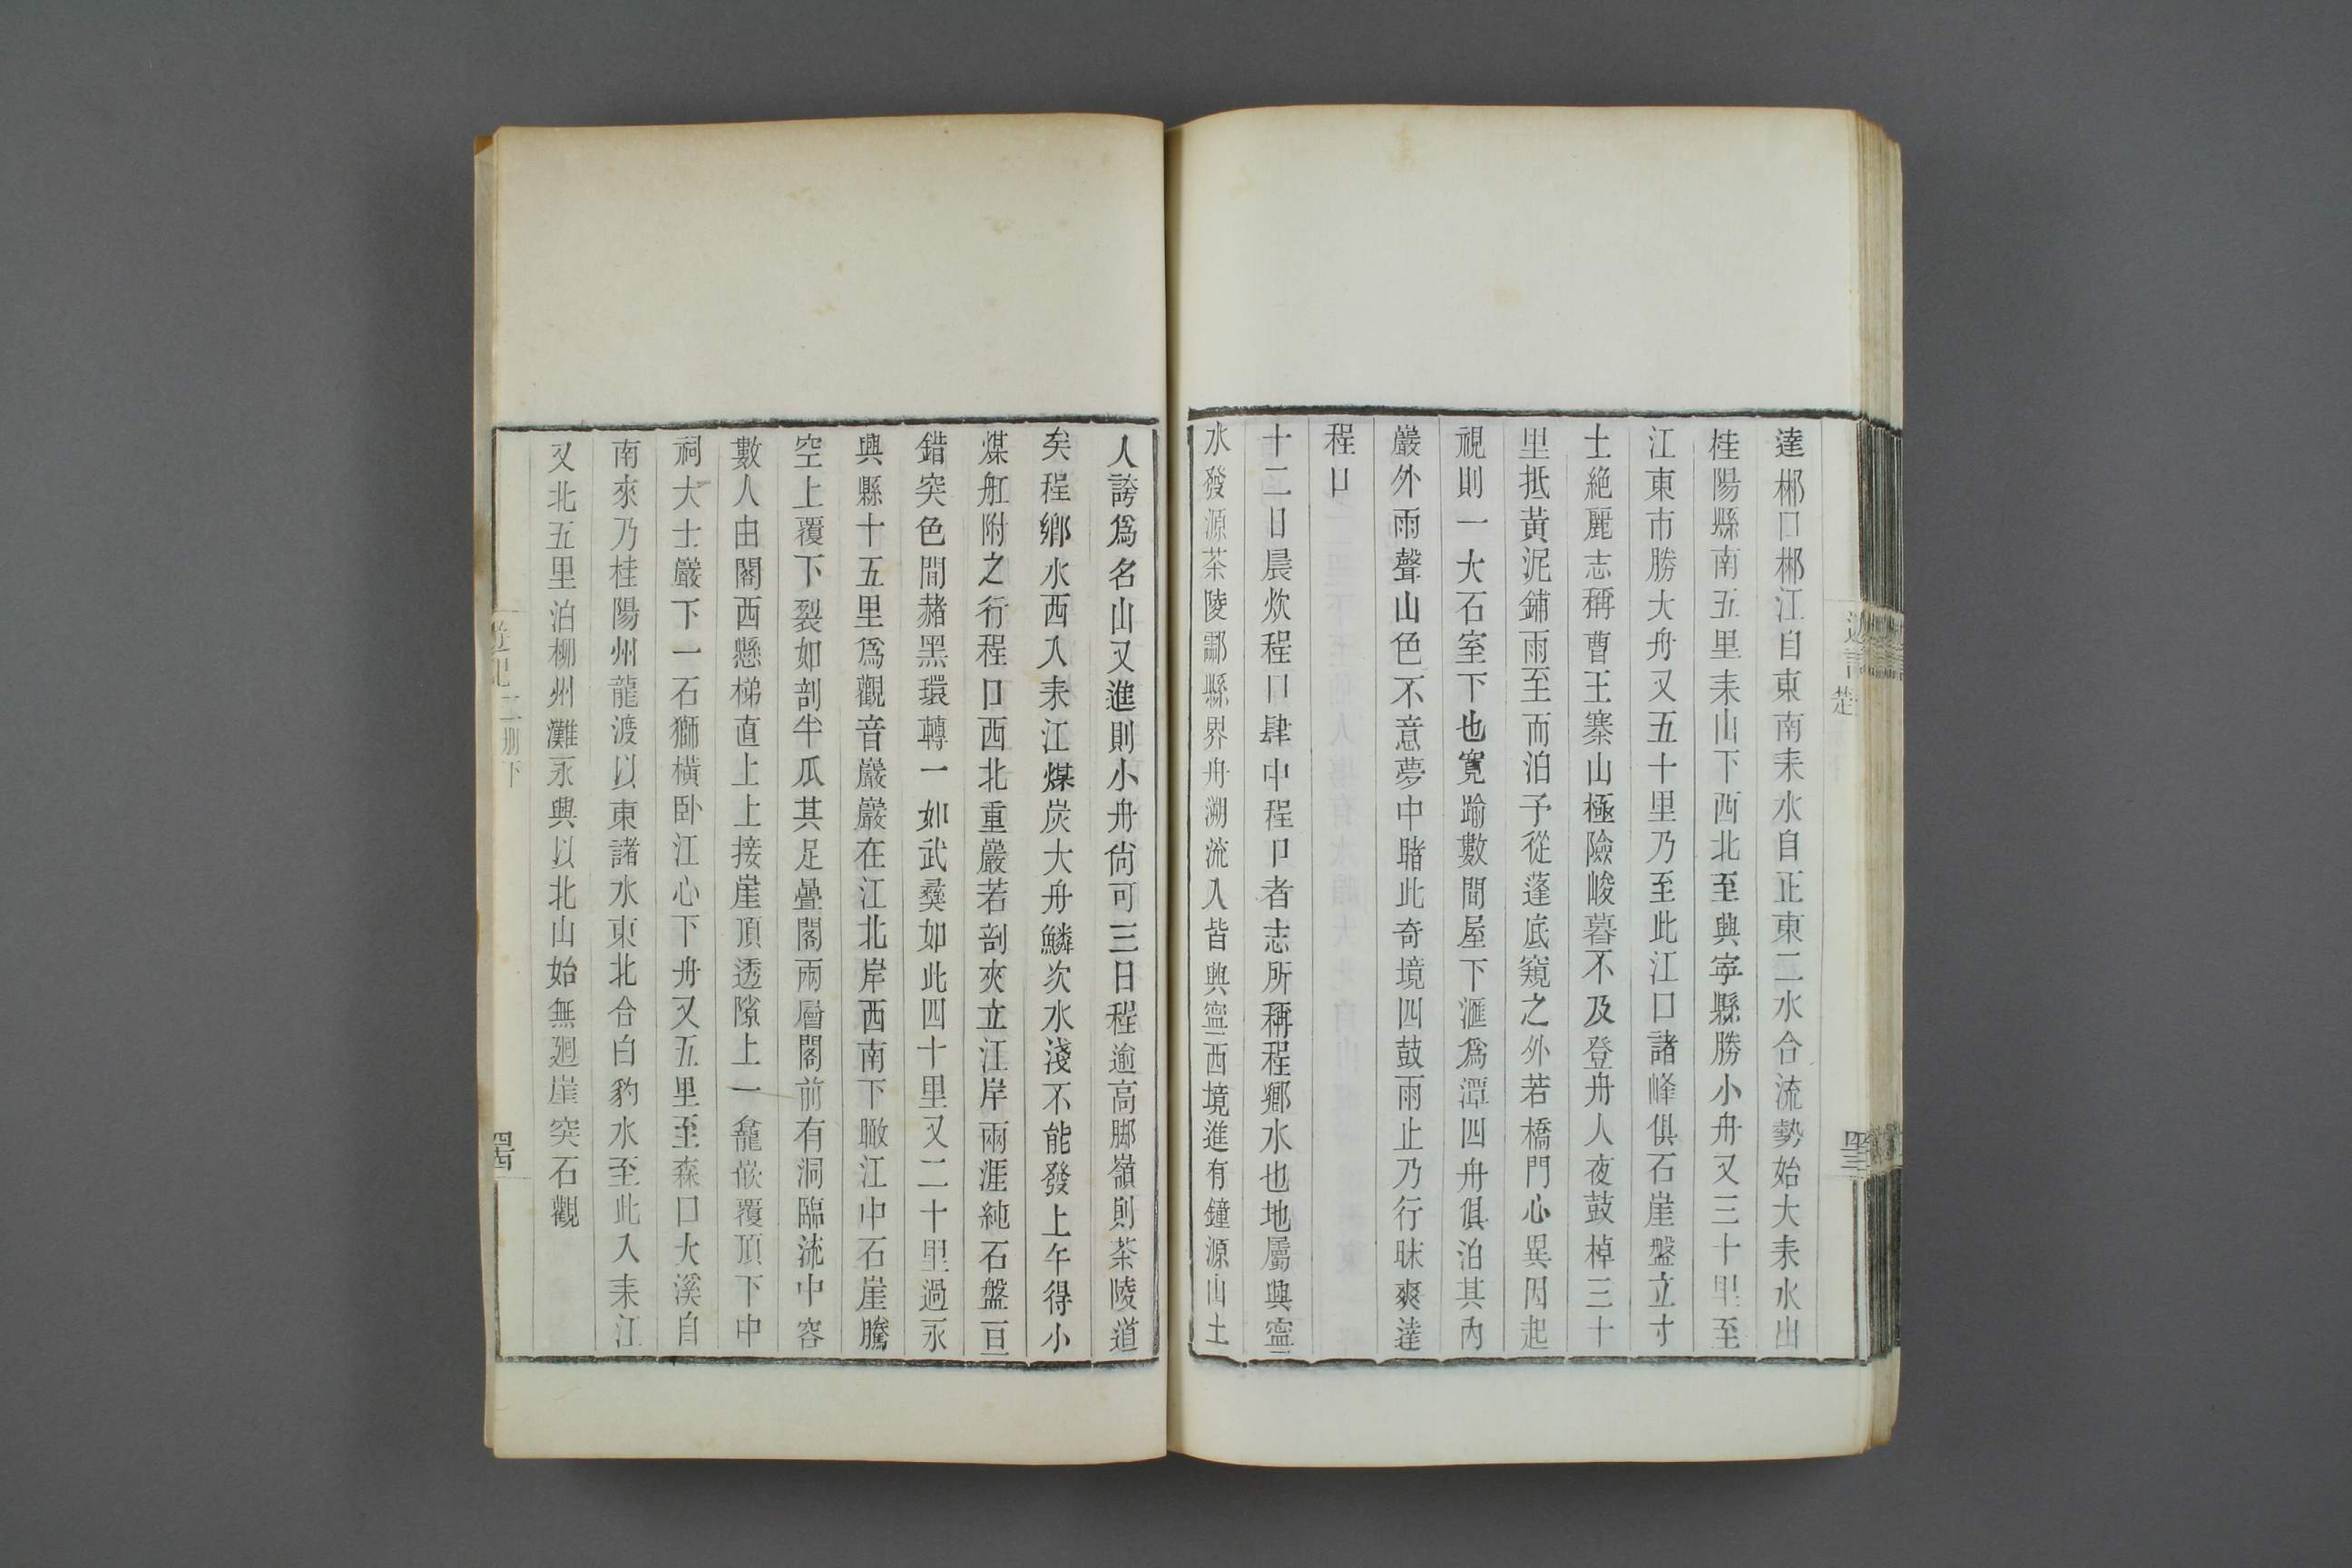 達郴口郴江自東南耒水自正東二水合流勢始大耒水出
桂陽縣南五里耒山下西北至興寧縣勝小舟又三十里至
江東市勝大舟又五十里乃至此江口諸峰俱石崖盤立寸
土絶麗志稱曹王寨山極險峻暮不及登舟人夜鼓棹三十
里抵黃泥鋪雨至而泊予從蓬底窺之外若橋門心異因起
視則一大石室下也寬踰數間屋下滙爲潭四舟俱泊其內
巖外雨聲山色不意夢中睹此奇境四鼓雨止乃行昧爽達
程口
十二日晨炊程口肆中程口者志所稱程鄉水也地屬興寧
水發源茶陵酃縣界舟溯流入皆興寧西境進有鐘源山土
人誇爲名山又進則小舟尙可三日程逾高脚嶺則茶陵道
矣程鄉水西入耒江煤炭大舟鱗次水淺不能發上午得小
煤舡附之行程口西北重巖若剖夾立江岸兩涯純石盤亘
錯突色間赭黑環轉一如武彝如此四十里又二十里過永
興縣十五里爲觀音巖巖在江北岸西南下瞰江中石崖騰
空上覆下裂如剖半瓜其足疊閣兩層閣前有洞臨流中容
數人由閣西懸梯直上上接崖頂透隙上一龕嵌覆頂下中
祠大士巖下一石獅橫卧江心下舟又五里至森口大溪自
南來乃桂陽州龍渡以東諸水東北合白豹水至此入耒江
又北五里泊柳州灘永興以北山始無廻崖突石觀
四三
四四